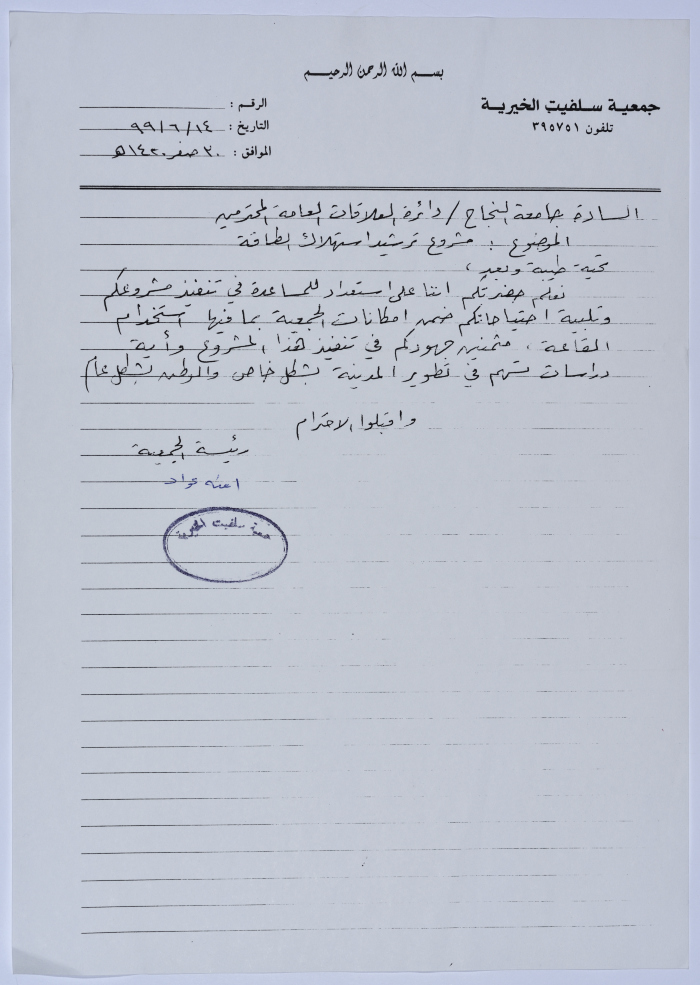 بسم الله الرحمن الرحيم
جمعية سلفيت الخيرية
تلفون ٣٩٥٧٥١
الرقم :
التاريخ : ٩٩/٦/١٤
الموافق : ٣٠ صفر ١٤٢٠هـ
السادة جامعة النجاح / دائرة العلاقات العامة المحترمين
الموضوع : مشروع ترشيد استهلاك الطاقة
تحية طيبة وبعد ،
نعلم حضرتكم اننا على استعداد للمساعدة في تنفيذ مشروعكم
وتلبية احتياجاتكم ضمن امكانات الجمعية بما فيها استخدام
القاعة ، مثمنين جهودكم في تنفيذ هذا المشروع وأية
دراسات تسهم في تطوير المدينة بشكل خاص والوطن بشكل عام
واقبلوا الاحترام
رئيسة الجمعية
عواد
جمعية سلفيت الخيرية